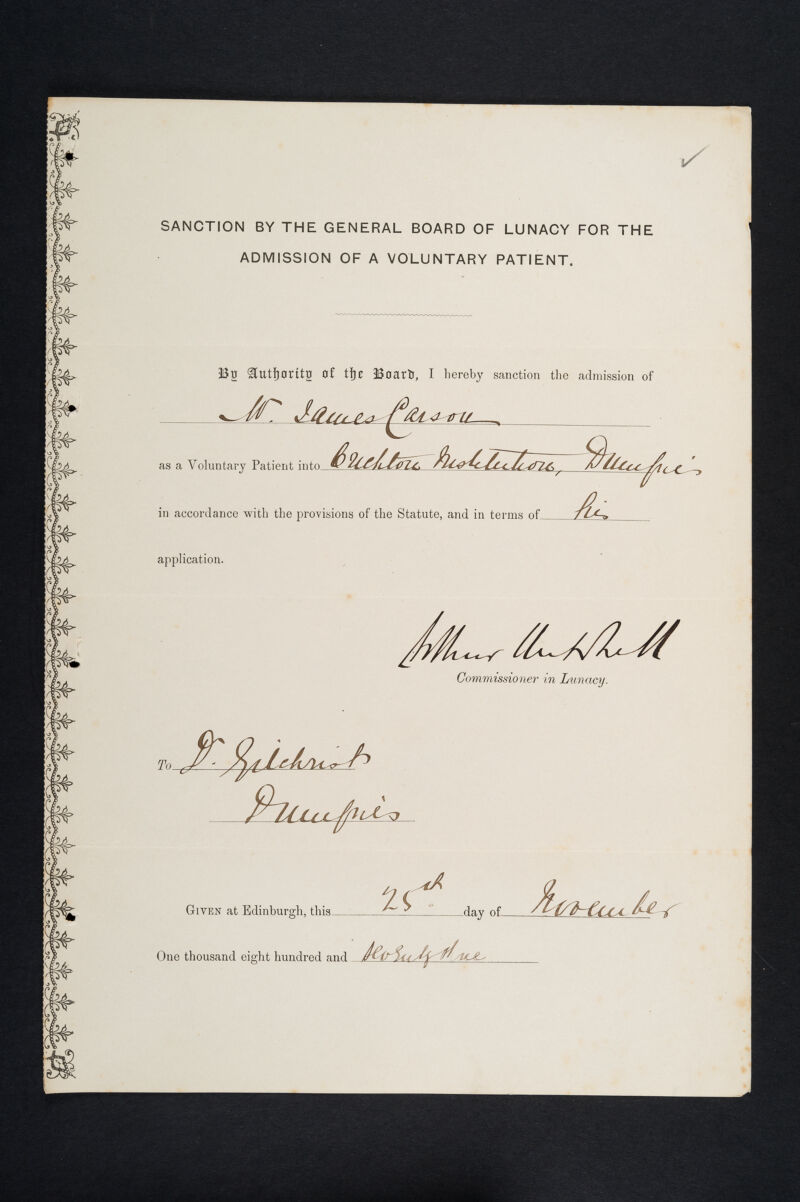 SANCTION BY THE GENERAL BOARD OF LUNACY FOR THE
ADMISSION OF A VOLUNTARY PATIENT.
By Authority of the Board, I hereby sanction the admission of
Mr. James Carson
as a Voluntary Patient into Crichton Institution, Dumfries
in accordance with the provisions of the Statute, and in terms of his
application.
Arthur Mitchell
Commissioner in Lunacy.
To Dr. Gilchrist
Dumfries
GIVEN at Edinburgh, this 25th day of November
One thousand eight hundred and Seventy